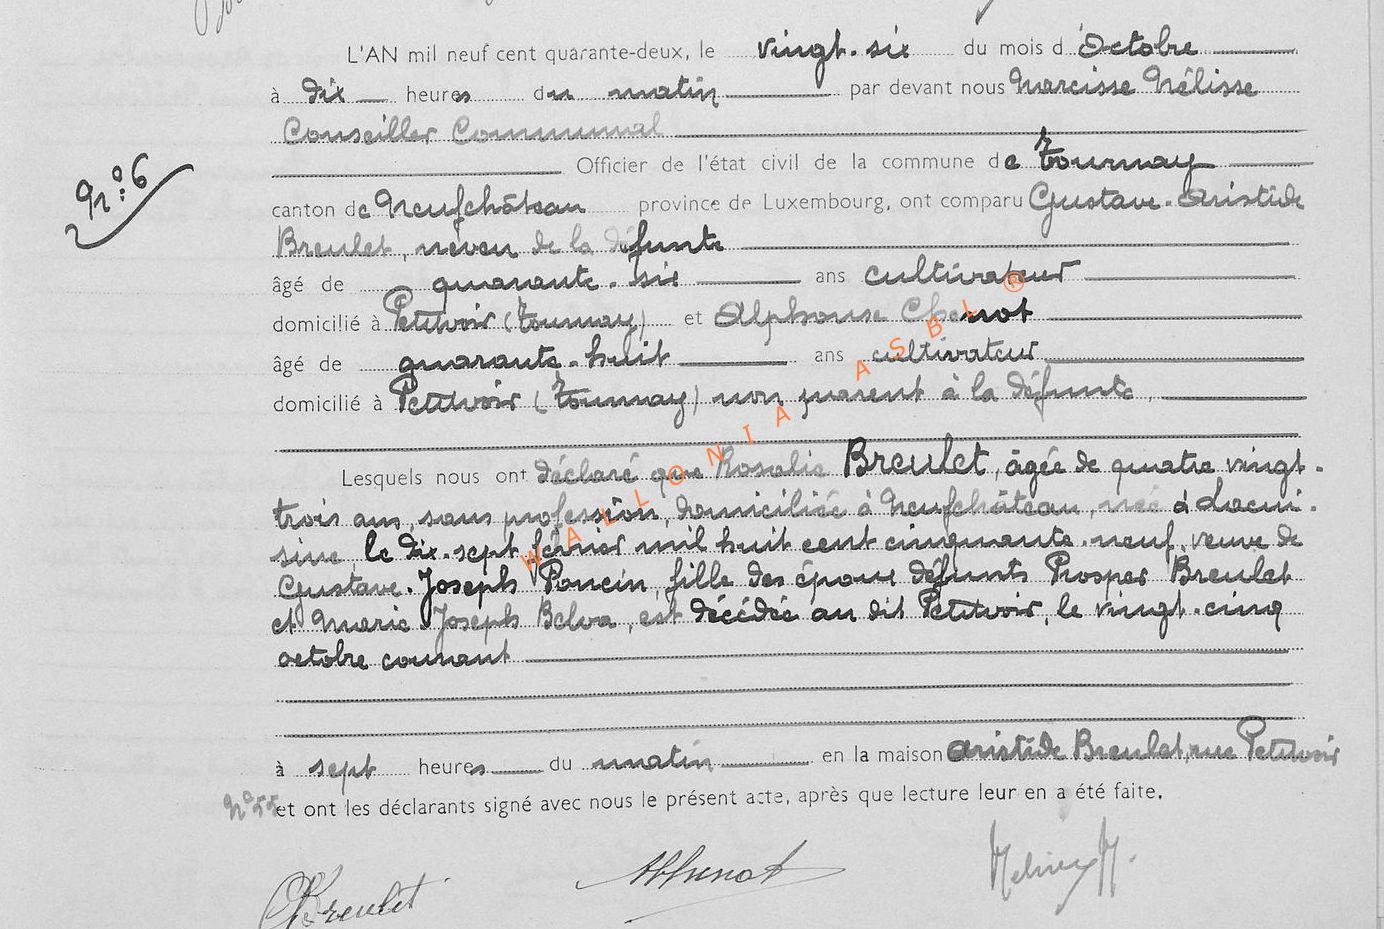 L'AN mil neuf cent quarante-deux, le vingt-six du mois d'Octobre
à dix heures du matin par devant nous Narcisse Nélisse
Conseiller Communal
Officier de l'état civil de la commune de Tournay
N°: 6
canton de Neufchâteau province de Luxembourg, ont comparu Gustave-Aristide
Breulet, neveu de la défunte
âgé de quarante-six ans cultivateur
domicilié à Petitvoir (Tournay) et Alphonse Chenot
âgé de quarante-huit ans cultivateur
domicilié à Petitvoir (Tournay) non parent à la défunte,
Lesquels nous ont déclaré que Rosalie Breulet, âgée de quatre vingt-
trois ans, sans profession, domiciliée à Neufchâteau, née à Lacui-
sine, le dix-sept février mil huit cent cinquante-neuf, veuve de
Gustave-Joseph Poncin, fille des époux défunts Prosper Breulet
et Marie Joseph Belva, est décédée au dit Petitvoir, le vingt-cinq
octobre courant
à sept heures du matin en la maison Aristide Breulet, rue Petitvoir
N° 55 et ont les déclarants signé avec nous le présent acte, après que lecture leur en a été faite.
Breulet AChenot
WALLONIA ASBL ®